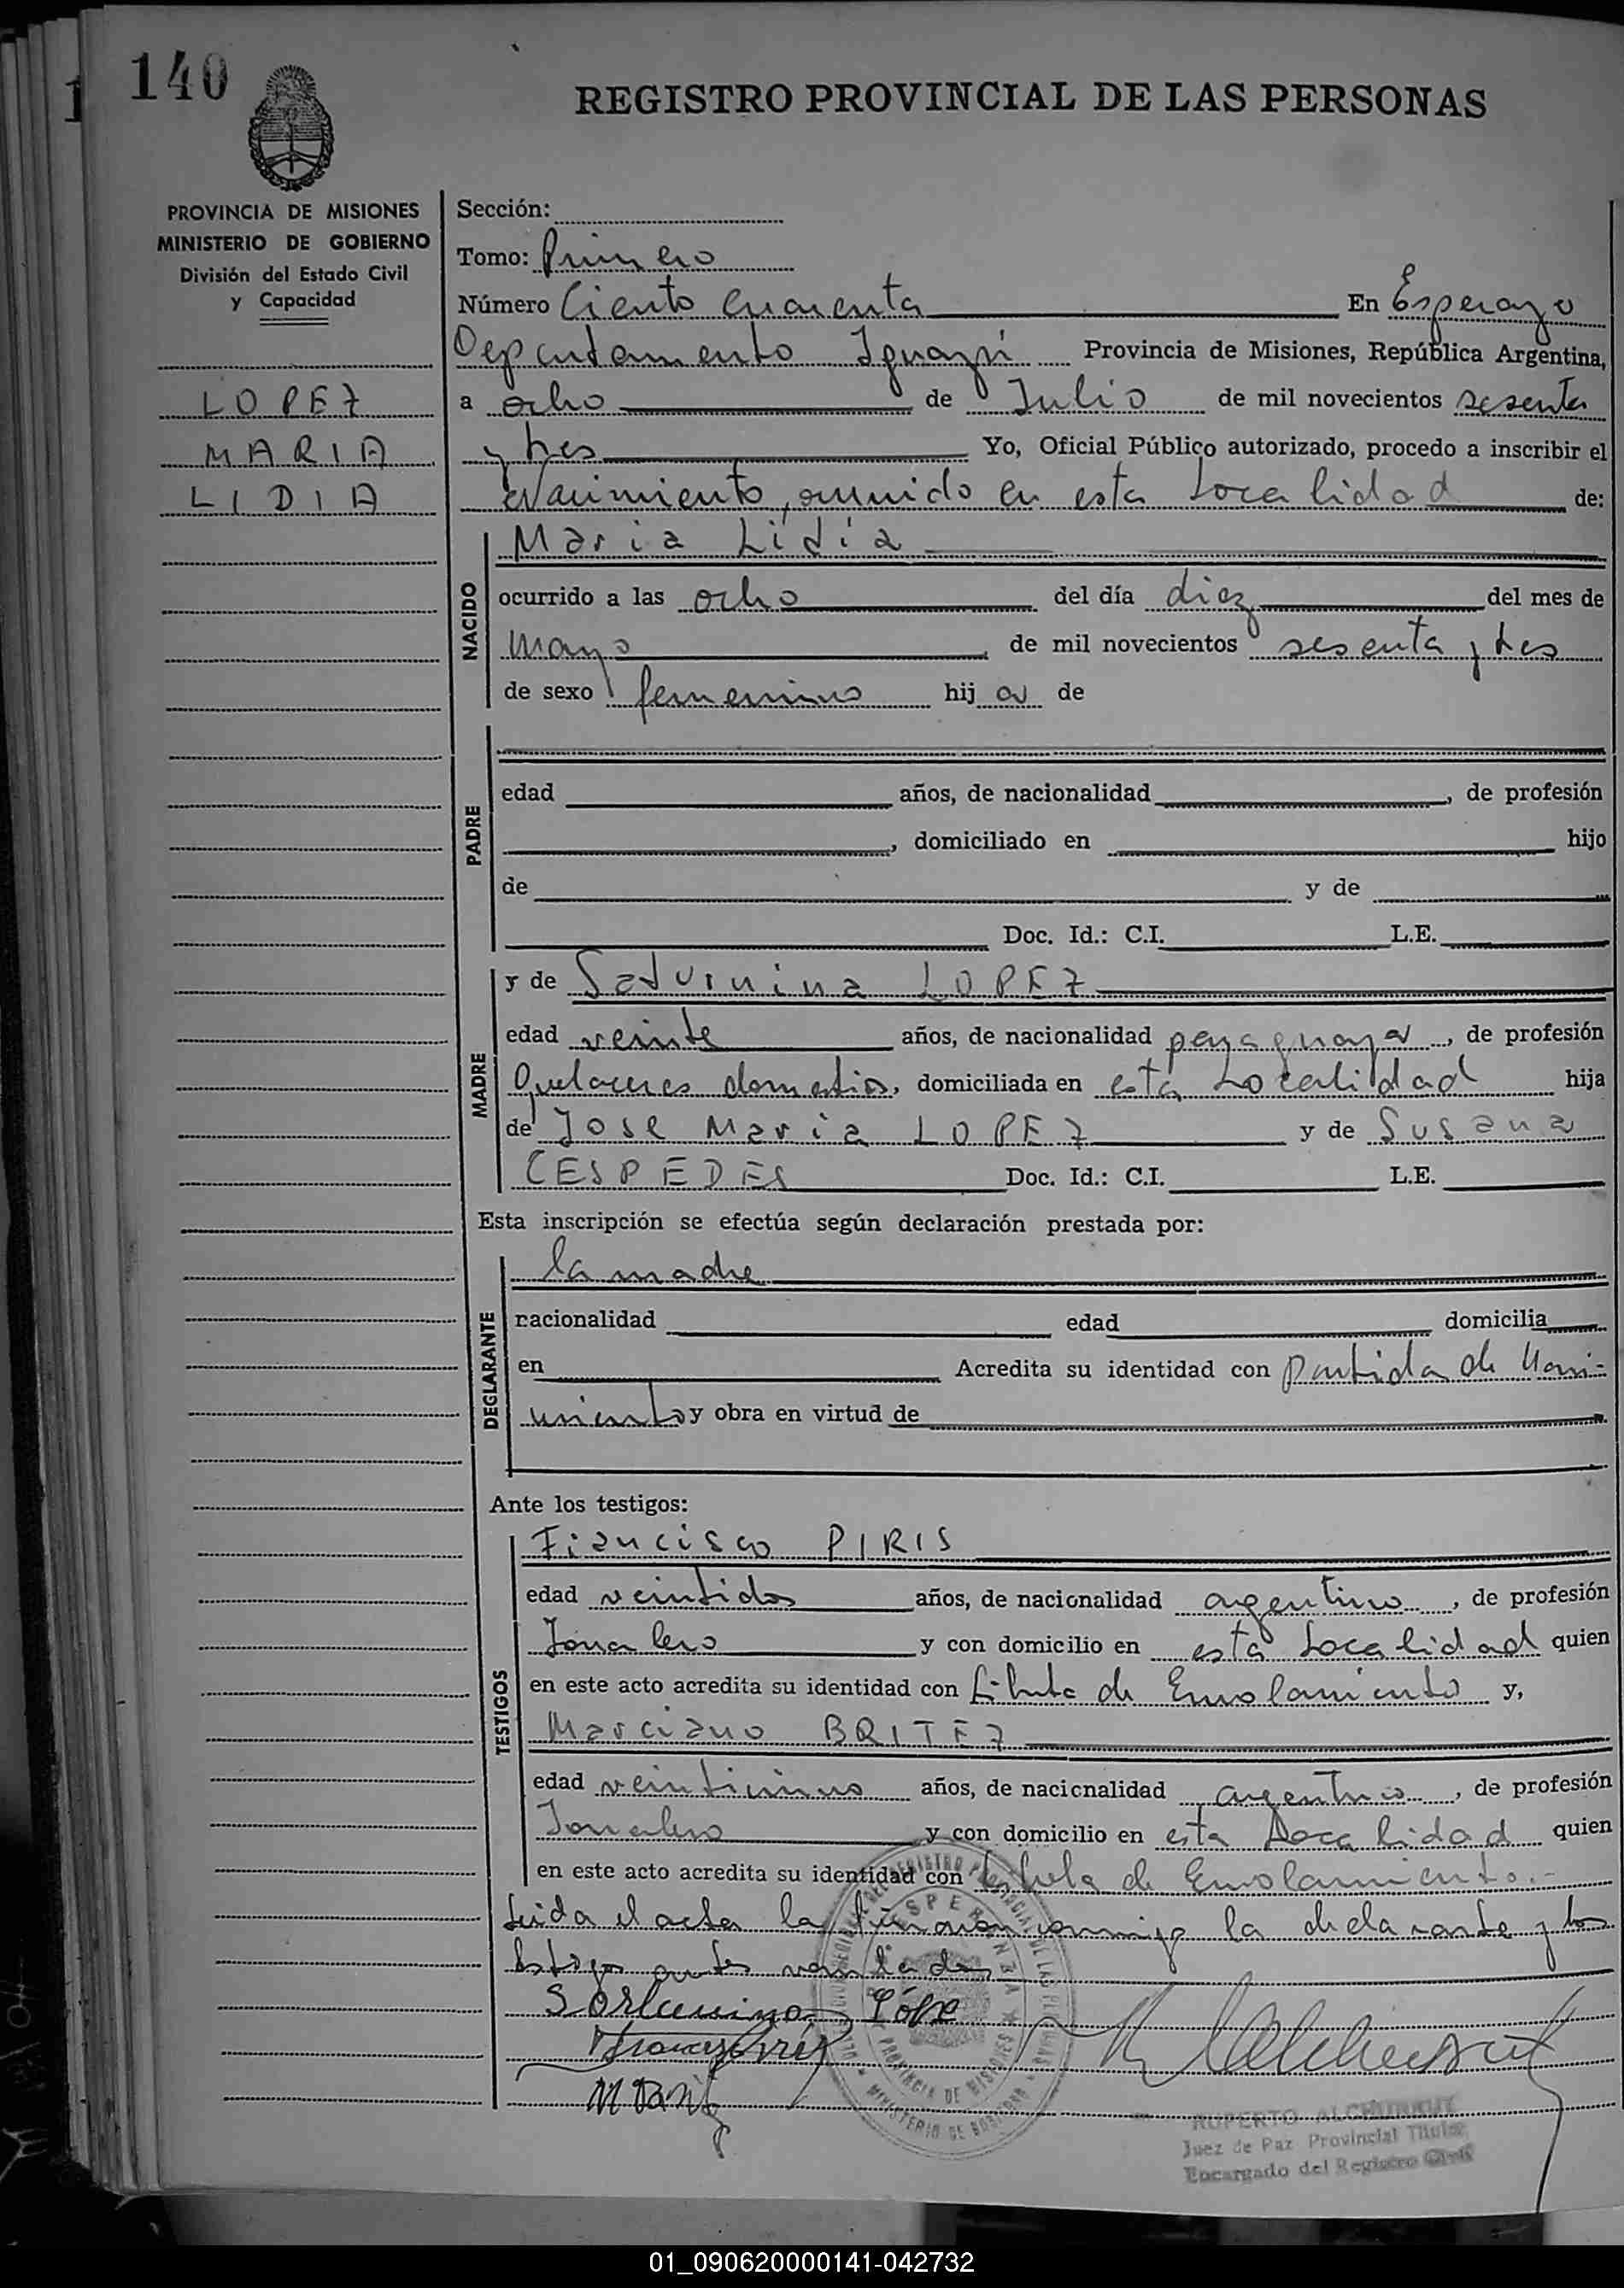 140
REGISTRO PROVINCIAL DE LAS PERSONAS
PROVINCIA DE MISIONES
MINISTERIO DE GOBIERNO
División del Estado Civil
y Capacidad
LOPEZ
MARIA
LIDIA
Sección:
Tomo: Primero
Número Ciento cuarenta En Esperanza
Departamento Iguazú Provincia de Misiones, República Argentina,
a ocho de Julio de mil novecientos sesenta
y tres Yo, Oficial Público autorizado, procedo a inscribir el
Nacimiento, ocurrido en esta Localidad de:
NACIDO
Maria Lidia
ocurrido a las ocho del día diez del mes de
mayo de mil novecientos sesenta y tres
de sexo femenino hij a de
PADRE
edad años, de nacionalidad , de profesión
, domiciliado en hijo
de y de
Doc. Id.: C.I. L.E.
MADRE
y de Saturnina LOPEZ
edad veinte años, de nacionalidad paraguaya, de profesión
Quehaceres domesticos, domiciliada en esta Localidad hija
de Jose Maria LOPEZ y de Susana
CESPEDES Doc. Id.: C.I. L.E.
Esta inscripción se efectúa según declaración prestada por:
DECLARANTE
la madre
nacionalidad edad domicilia
en Acredita su identidad con partida de Naci-
miento y obra en virtud de
Ante los testigos:
TESTIGOS
Francisco PIRIS
edad veintidos años, de nacionalidad argentino, de profesión
Jornalero y con domicilio en esta Localidad quien
en este acto acredita su identidad con Libreta de Enrolamiento y,
Marciano BRITEZ
edad veinticinco años, de nacionalidad argentino, de profesión
Jornalero y con domicilio en esta Localidad quien
en este acto acredita su identidad con Libreta de Enrolamiento.-
Leida el acta la firman conmigo la declarante y los
testigos antes nombrados
Lópe
RUPERTO ALCHURRUT
Juez de Paz Provincial Titular
Encargado del Registro Civil
01_090620000141-042732